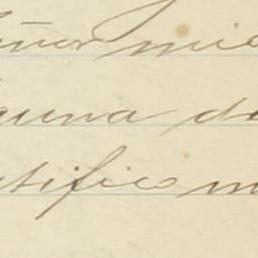 eñor mio
guna de
ntifico m